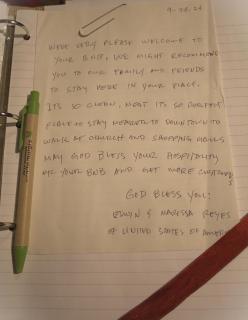 WE'RE VERY PLEASE WELCOME TO
YOUR BNB, WE MIGHT RECOMMEND
YOU TO OUR FAMILY AND FRIENDS
TO STAY HERE IN YOUR PLACE.
ITS SO CLEAN, NEAT ITS SO PERFECT
PLACE TO STAY NEARER TO DOWNTOWN TO
WALK AT CHURCH AND SHOPPING MALLS
MAY GOD BLESS YOUR HOSPITALITY
YOUR BNB AND GET MORE CUSTOMERS
GOD BLESS YOU!
EDWIN & MARISSA REYES
OF UNITED STATES OF AMERICA